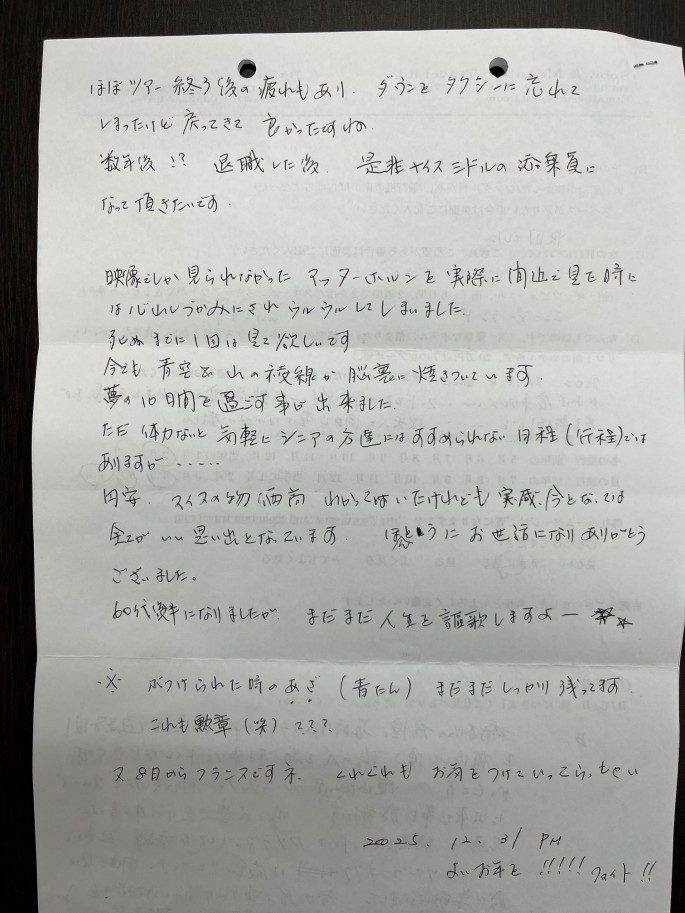 ほぼツアー終了後の疲れもあり、ダウンをタクシーに忘れて
しまったけど戻ってきて良かったですね。
数年後!? 退職した後、是非ナイスミドルの添乗員に
なって頂きたいです。
映像でしか見られなかったマッターホルンを実際に間近で見た時に
は心わしづかみにされウルウルしてしまいました。
死ぬまでに1回は見て欲しいです。
今でも青空と山の稜線が脳裏に焼きついています。
夢の10日間を過ごす事が出来ました。
ただ体力ないと気軽にシニアの方達にはすすめられない日程(行程)では
ありますが……
円安、スイスの物価高わかってはいたけれども実感、今となっては
全てがいい思い出となっています。ほんとうにお世話になりありがとう
ございました。
60代後半になりましたが、まだまだ人生を謳歌しますよー
※ ぶつけられた時のあざ(青たん)まだまだしっかり残ってます。
これも勲章(笑)???
又8日からフランスですネ、くれぐれもお気をつけていってらっしゃい
2025. 12. 31 PM
よいお年を!!!!! ファイト!!